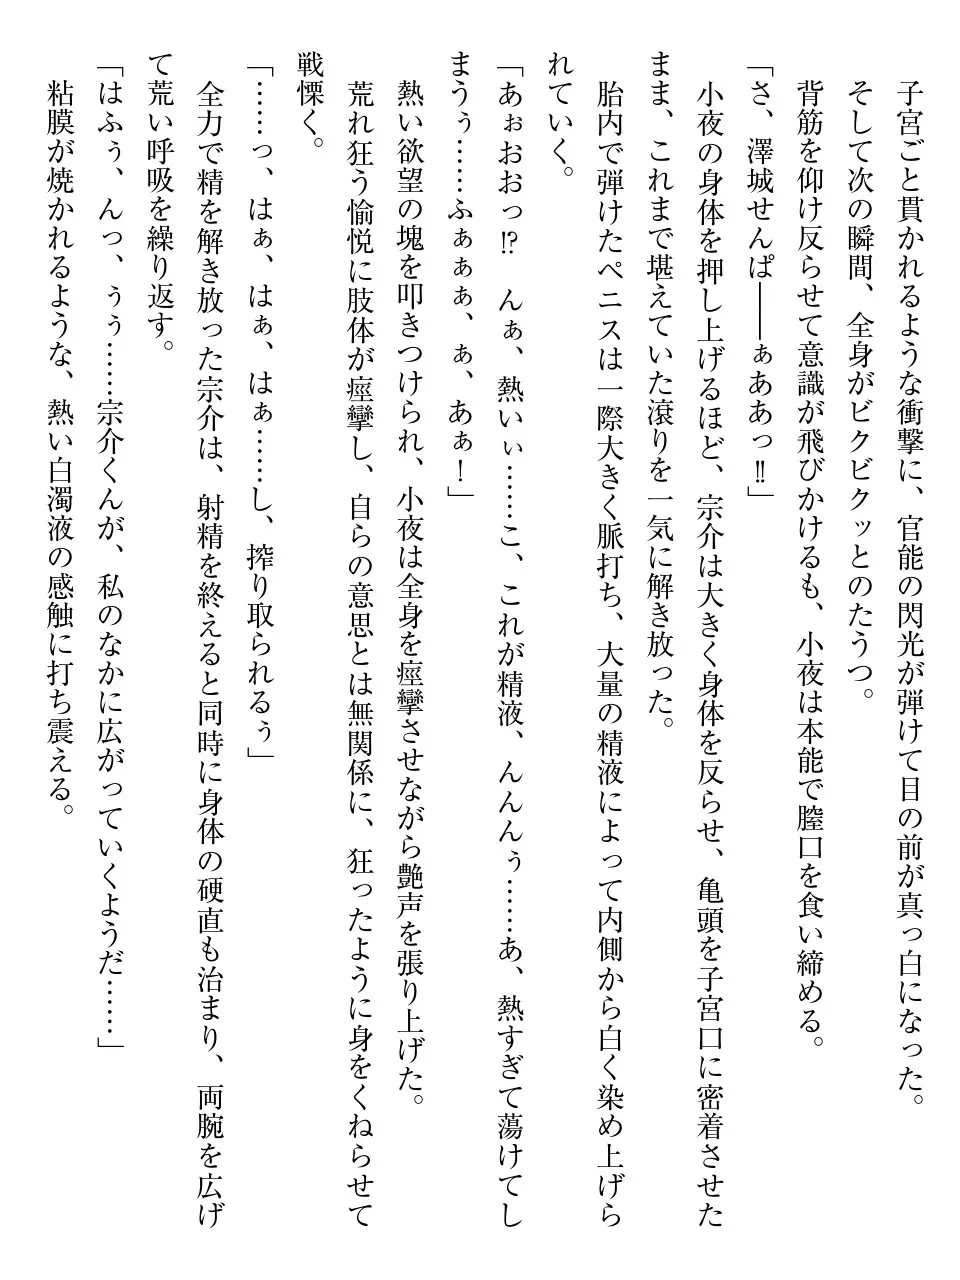 子宮ごと貫かれるような衝撃に、官能の閃光が弾けて目の前が真っ白になった。
そして次の瞬間、全身がビクビクッとのたうつ。
背筋を仰け反らせて意識が飛びかけるも、小夜は本能で膣口を食い締める。
「さ、澤城せんぱ――ぁああっ!!」
小夜の身体を押し上げるほど、宗介は大きく身体を反らせ、亀頭を子宮口に密着させた
まま、これまで堪えていた滾りを一気に解き放った。
胎内で弾けたペニスは一際大きく脈打ち、大量の精液によって内側から白く染め上げら
れていく。
「あぉおおっ!?　んぁ、熱いぃ……こ、これが精液、んんんぅ……あ、熱すぎて蕩けてし
まうぅ……ふぁぁぁ、ぁ、あぁ！」
熱い欲望の塊を叩きつけられ、小夜は全身を痙攣させながら艶声を張り上げた。
荒れ狂う愉悦に肢体が痙攣し、自らの意思とは無関係に、狂ったように身をくねらせて
戦慄く。
「……っ、はぁ、はぁ、はぁ……し、搾り取られるぅ」
全力で精を解き放った宗介は、射精を終えると同時に身体の硬直も治まり、両腕を広げ
て荒い呼吸を繰り返す。
「はふぅ、んっ、ぅぅ……宗介くんが、私のなかに広がっていくようだ……」
粘膜が焼かれるような、熱い白濁液の感触に打ち震える。